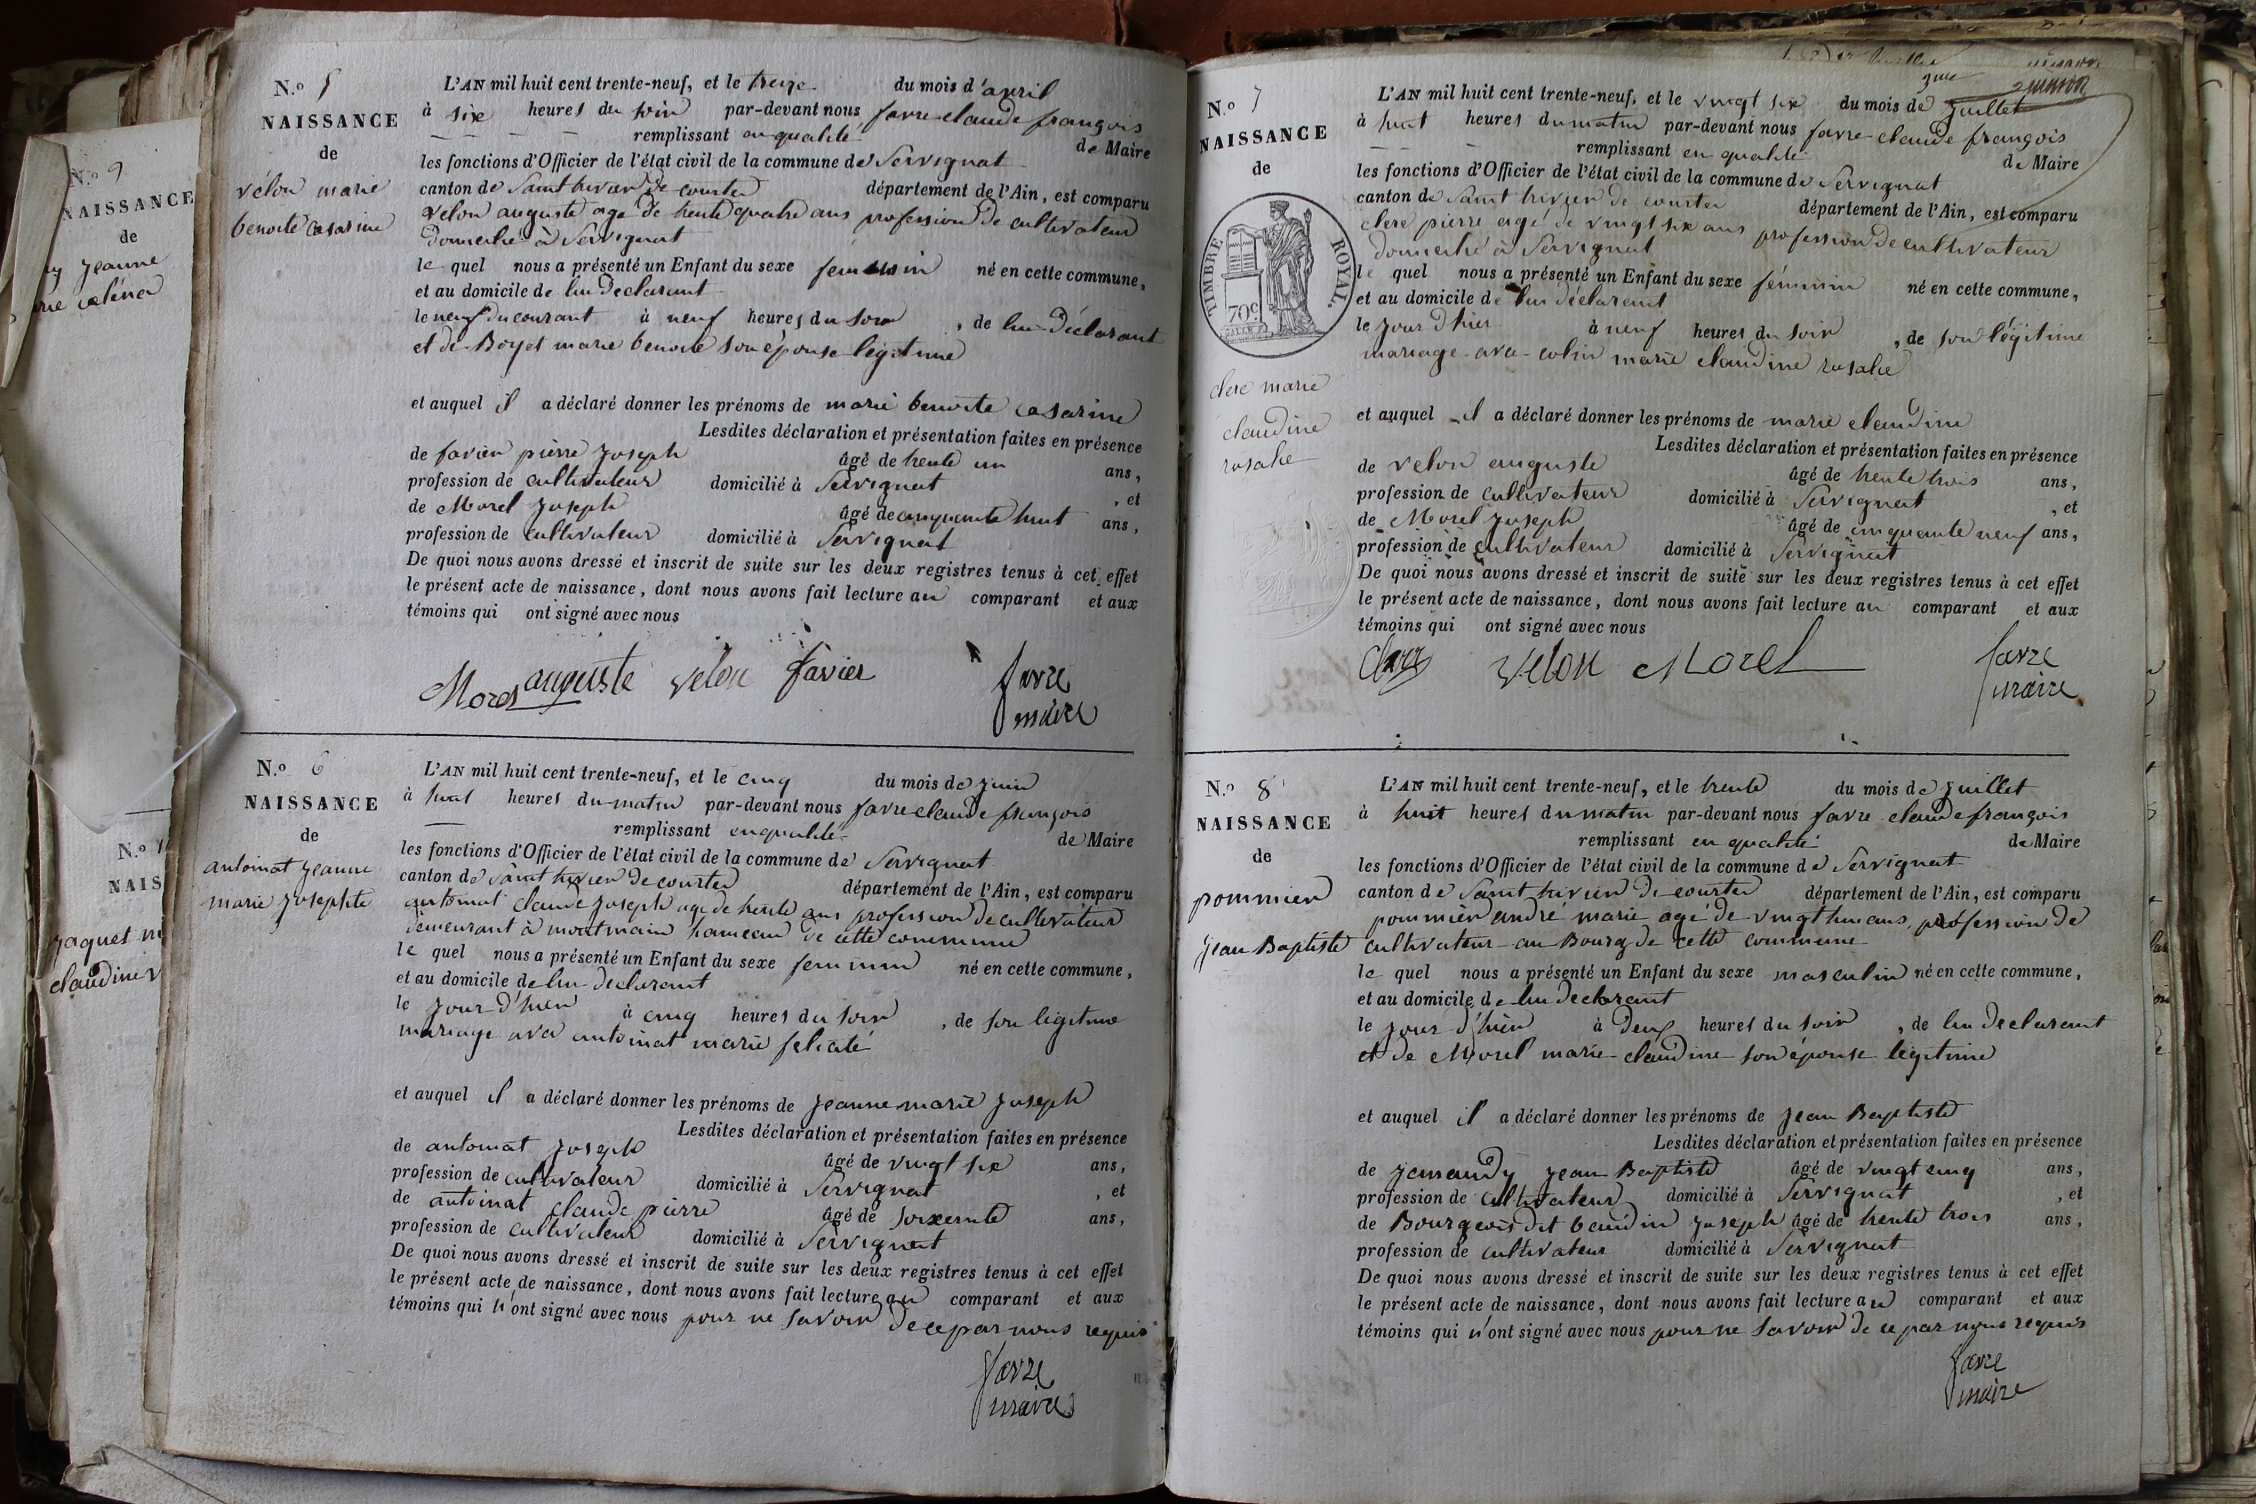 N.o 9
NAISSANCE
de
Jeanne
N.o 1
NAIS
jaquet m
claudine
N.o 5
NAISSANCE
de
velon marie
benoite Casarine
L'AN mil huit cent trente-neuf, et le treize du mois d'avril
à six heures du soir par-devant nous favre claude françois
remplissant en qualité de Maire
les fonctions d'Officier de l'état civil de la commune de Servignat
canton de Saint trivier de courtes département de l'Ain, est comparu
velon auguste age de trente quatre ans profession de cultivateur
domicilié à Servignat
le quel nous a présenté un Enfant du sexe féminin né en cette commune,
et au domicile de lui declarant
le neuf du courant à neuf heures du soir, de lui Déclarant
et de Boyet marie benoite son épouse légitime
et auquel il a déclaré donner les prénoms de marie benoite Casarine
Lesdites déclaration et présentation faites en présence
de favier pierre joseph âgé de trente un ans,
profession de cultivateur domicilié à Servignat, et
de Morel Joseph âgé de cinquante huit ans,
profession de cultivateur domicilié à Servignat
De quoi nous avons dressé et inscrit de suite sur les deux registres tenus à cet effet
le présent acte de naissance, dont nous avons fait lecture au comparant et aux
témoins qui ont signé avec nous
Morel auguste velon favier favre
maire
N.o 6
NAISSANCE
de
antoinat jeanne
marie josephte
L'AN mil huit cent trente-neuf, et le cinq du mois de juin
à huit heures du matin par-devant nous favre claude françois
remplissant en qualité de Maire
les fonctions d'Officier de l'état civil de la commune de Servignat
canton de Saint trivier de courtes département de l'Ain, est comparu
antoinat claude joseph age de trente ans profession de cultivateur
demeurant à montmain hameau de cette commune
le quel nous a présenté un Enfant du sexe feminin né en cette commune,
et au domicile de lui declarant
le jour d'hier à cinq heures du soir, de son légitime
mariage avec antoinat marie felicité
et auquel il a déclaré donner les prénoms de jeanne marie joseph
Lesdites déclaration et présentation faites en présence
de antoinat joseph âgé de vingt six ans,
profession de cultivateur domicilié à Servignat, et
de antoinat claude pierre âgé de soixente ans,
profession de cultivateur domicilié à Servignat
De quoi nous avons dressé et inscrit de suite sur les deux registres tenus à cet effet
le présent acte de naissance, dont nous avons fait lecture au comparant et aux
témoins qui n'ont signé avec nous pour ne savoir de ce par nous requis
favre
maire
N.o 7
NAISSANCE
de
TIMBRE ROYAL.
70c
clere marie
claudine
rosalie
L'AN mil huit cent trente-neuf, et le vingt six du mois de juillet
à huit heures du matin par-devant nous favre claude françois
remplissant en qualité de Maire
les fonctions d'Officier de l'état civil de la commune de Servignat
canton de Saint trivier de courtes département de l'Ain, est comparu
clere pierre agé de vingt six ans profession de cultivateur
domicilié à Servignat
le quel nous a présenté un Enfant du sexe féminin né en cette commune,
et au domicile de lui déclarant
le jour d'hier à neuf heures du soir, de son légitime
mariage avec colin marie claudine rosalie
et auquel il a déclaré donner les prénoms de marie claudine
Lesdites déclaration et présentation faites en présence
de velon auguste âgé de trente trois ans,
profession de cultivateur domicilié à Servignat, et
de Morel joseph âgé de cinquante neuf ans,
profession de cultivateur domicilié à Servignat
De quoi nous avons dressé et inscrit de suite sur les deux registres tenus à cet effet
le présent acte de naissance, dont nous avons fait lecture au comparant et aux
témoins qui ont signé avec nous
velon Morel favre
maire
N.o 8
NAISSANCE
de
pommier
jean Baptiste
L'AN mil huit cent trente-neuf, et le trente du mois de juillet
à huit heures du matin par-devant nous favre claude françois
remplissant en qualité de Maire
les fonctions d'Officier de l'état civil de la commune de Servignat
canton de Saint trivier de courtes département de l'Ain, est comparu
pommier andré marie agé de vingt huit ans, profession de
cultivateur au Bourg de cette commune
le quel nous a présenté un Enfant du sexe masculin né en cette commune,
et au domicile de lui declarant
le jour d'hier à deux heures du soir, de lui declarant
et de Morel marie claudine son épouse légitime
et auquel il a déclaré donner les prénoms de jean Baptiste
Lesdites déclaration et présentation faites en présence
de jamaudy jean Baptiste âgé de vingt cinq ans,
profession de cultivateur domicilié à Servignat, et
de Bourgeois dit baudin joseph âgé de trente trois ans,
profession de cultivateur domicilié à Servignat
De quoi nous avons dressé et inscrit de suite sur les deux registres tenus à cet effet
le présent acte de naissance, dont nous avons fait lecture au comparant et aux
témoins qui n'ont signé avec nous pour ne savoir de ce par nous requis
favre
maire